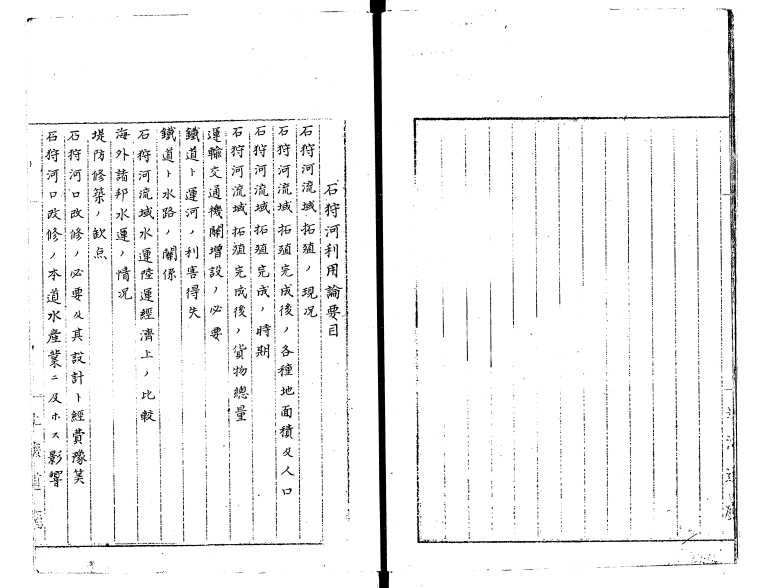 石狩河利用論要目
石狩河流域拓殖ノ現况
石狩河流域拓殖完成後ノ各種地面積及人口
石狩河流域拓殖完成ノ時期
石狩河流域拓殖完成後ノ貨物總量
運輸交通機關增設ノ必要
鐵道ト運河ノ利害得失
鐵道ト水路ノ關係
石狩河流域水運陸運經濟上ノ比較
海外諸邦水運ノ情况
堤防修築ノ欵点
石狩河口改修ノ必要及其設計ト經費豫筭
石狩河口改修ノ本道水産業ニ及ホス影響